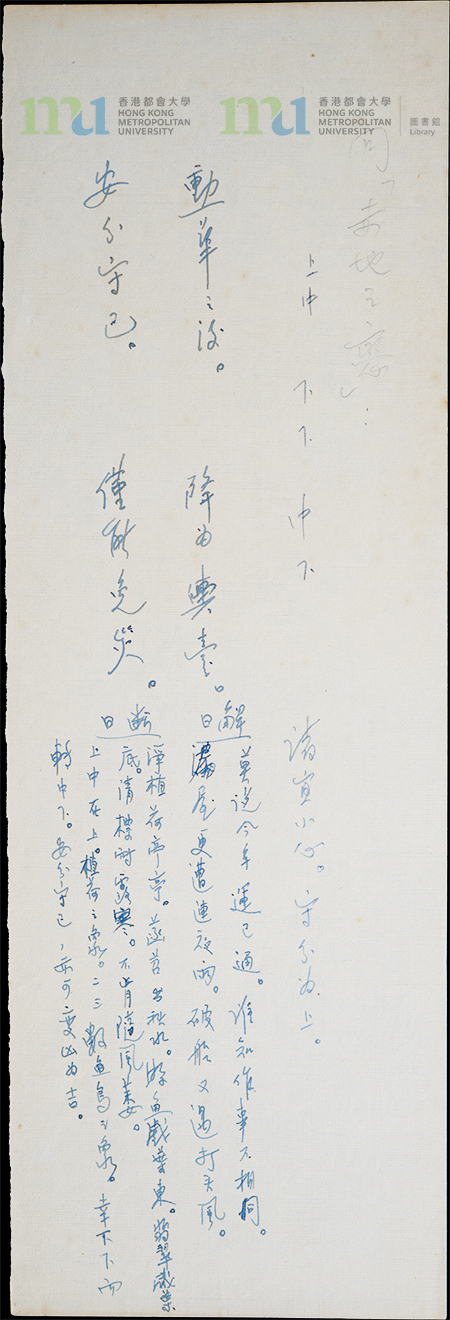 mu 香港都會大學 HONG KONG METROPOLITAN UNIVERSITY
mu 香港都會大學 HONG KONG METROPOLITAN UNIVERSITY 圖書館 Library
問「地之」：
上中　下下　中下
諸宜小心。守分為上。
勳華之後。降為輿臺。
安分守己。僅能免災。
解曰
莫說今年運已通。誰知作事不相同。
漏屋更遭連夜雨。破船又遇打頭風。
斷曰
淨植荷亭亭。菡萏出秋水。游魚戲葉東。翡翠戲葉
底。清標耐露寒。不肯隨風萎。
上中在上。植荷之象。二三數魚鳥之象。幸下下而
轉中下。安分守己，亦可變凶為吉。